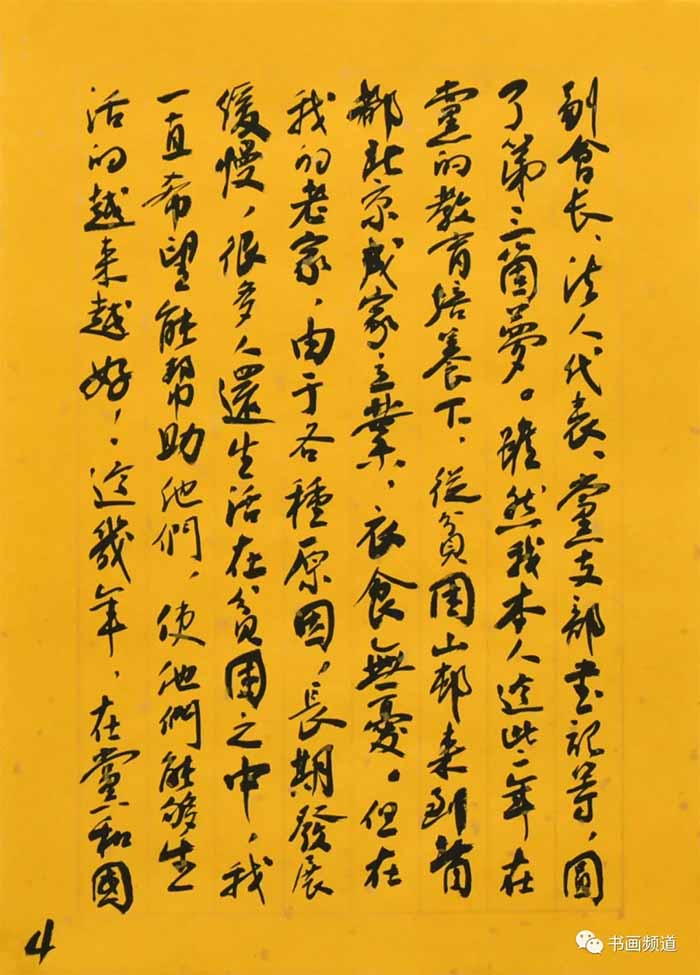 副會长、法人代表、黨支部書記等，圆
了第三箇夢。雖然我本人這些年在
黨的教育培養下，從貧困山邨来到首
都北京成家立業，衣食無憂。但在
我的老家，由于各種原因，長期發展
缓慢，很多人還生活在貧困之中，我
一直希望能帮助他們，使他們能够生
活的越来越好，這幾年，在黨和國
4
书画频道